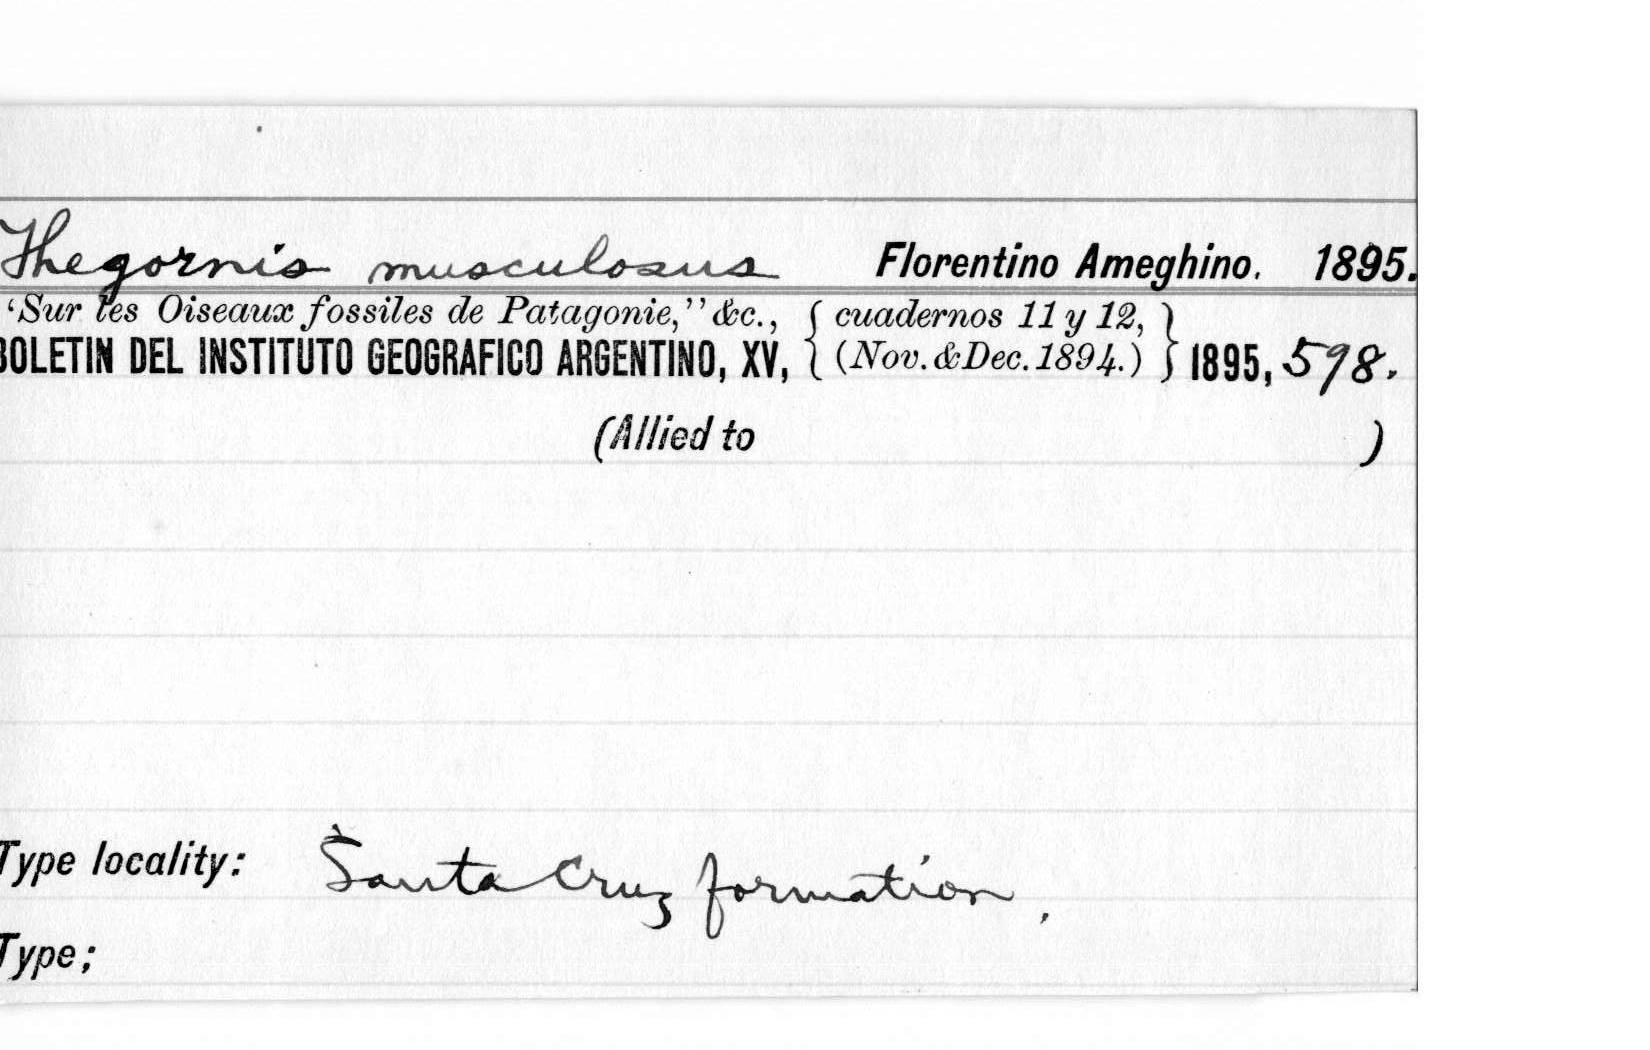 Thegornis musculosus Florentino Ameghino. 1895.
'Sur les Oiseaux fossiles de Patagonie," &c., { cuadernos 11 y 12, }
BOLETIN DEL INSTITUTO GEOGRAFICO ARGENTINO, XV, { (Nov. & Dec. 1894.) } 1895, 598.
(Allied to )
Type locality: Santa Cruz formation.
Type;